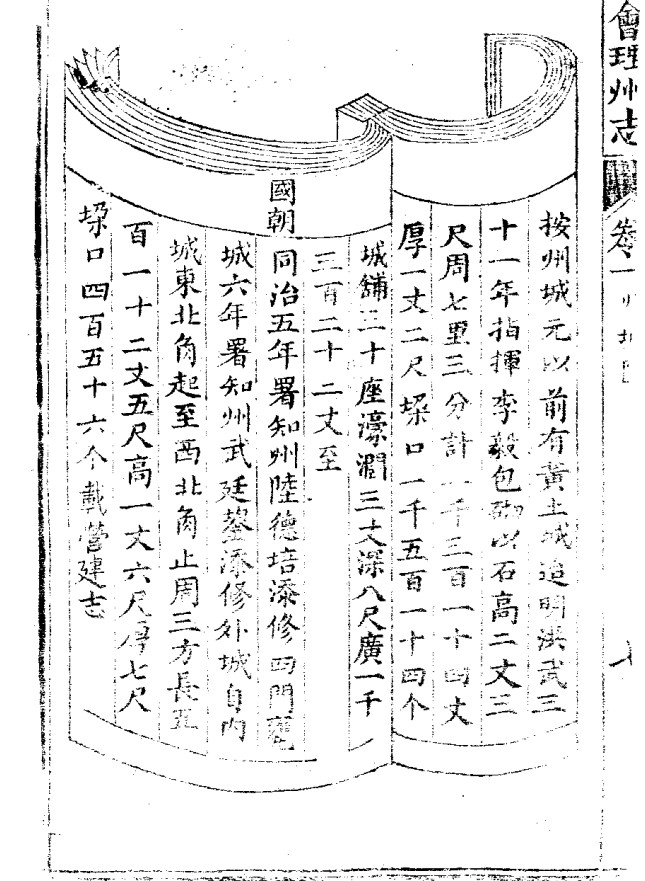 會理州志
卷一
按州城元以前有黃土城造明洪武三
十一年指揮李毅包砌以石高二丈三
尺周七里三分計一千三百一十四丈
厚一丈二尺垜口一千五百一十四个
城鋪三十座濠濶三丈深八尺廣一千
三百二十二丈至
國朝同治五年署知州陸德培添修四門甕
城六年署知州武廷鋆添修外城自內
城東北角起至西北角止周三方長五
百一十二丈五尺高一丈六尺厚七尺
垜口四百五十六个載營建志